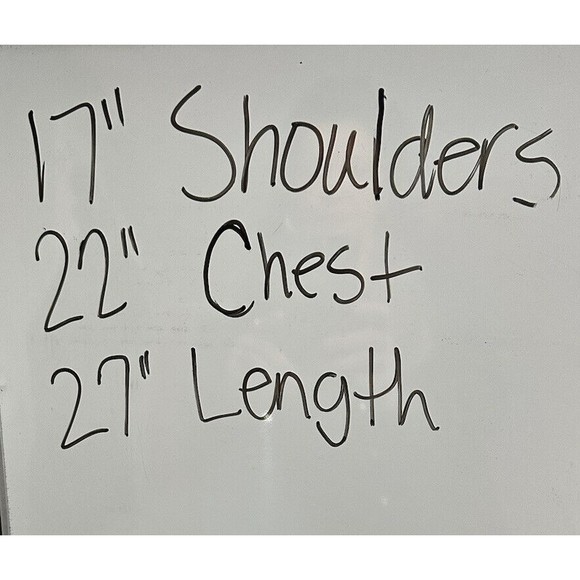 17" Shoulders
22" Chest
27" Length